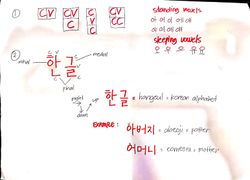 ① CV CV C CV C C CV CC
standing vowels
아 어 이 애 에
sleeping vowels
오 우 으 유 요
②
C V C V
initial 한 글 medial
C C
final
right up
down
한글 = hangeul = korean alphabet
EXAMPLE:
아버지 = abeoji = father
어머니 = eomeoni = mother